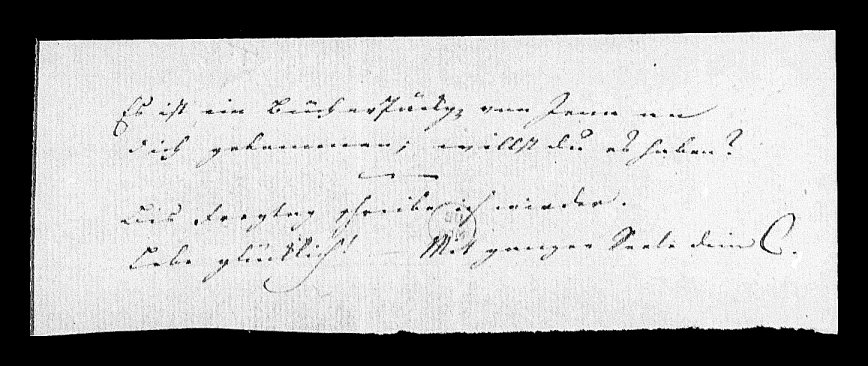 Es ist ein Bücherpäckgen von Jena an
dich gekommen, willst du es haben?
Bis Freytag schreibe ich wieder.
Lebe glücklich! — Mit ganzer Seele dein C.